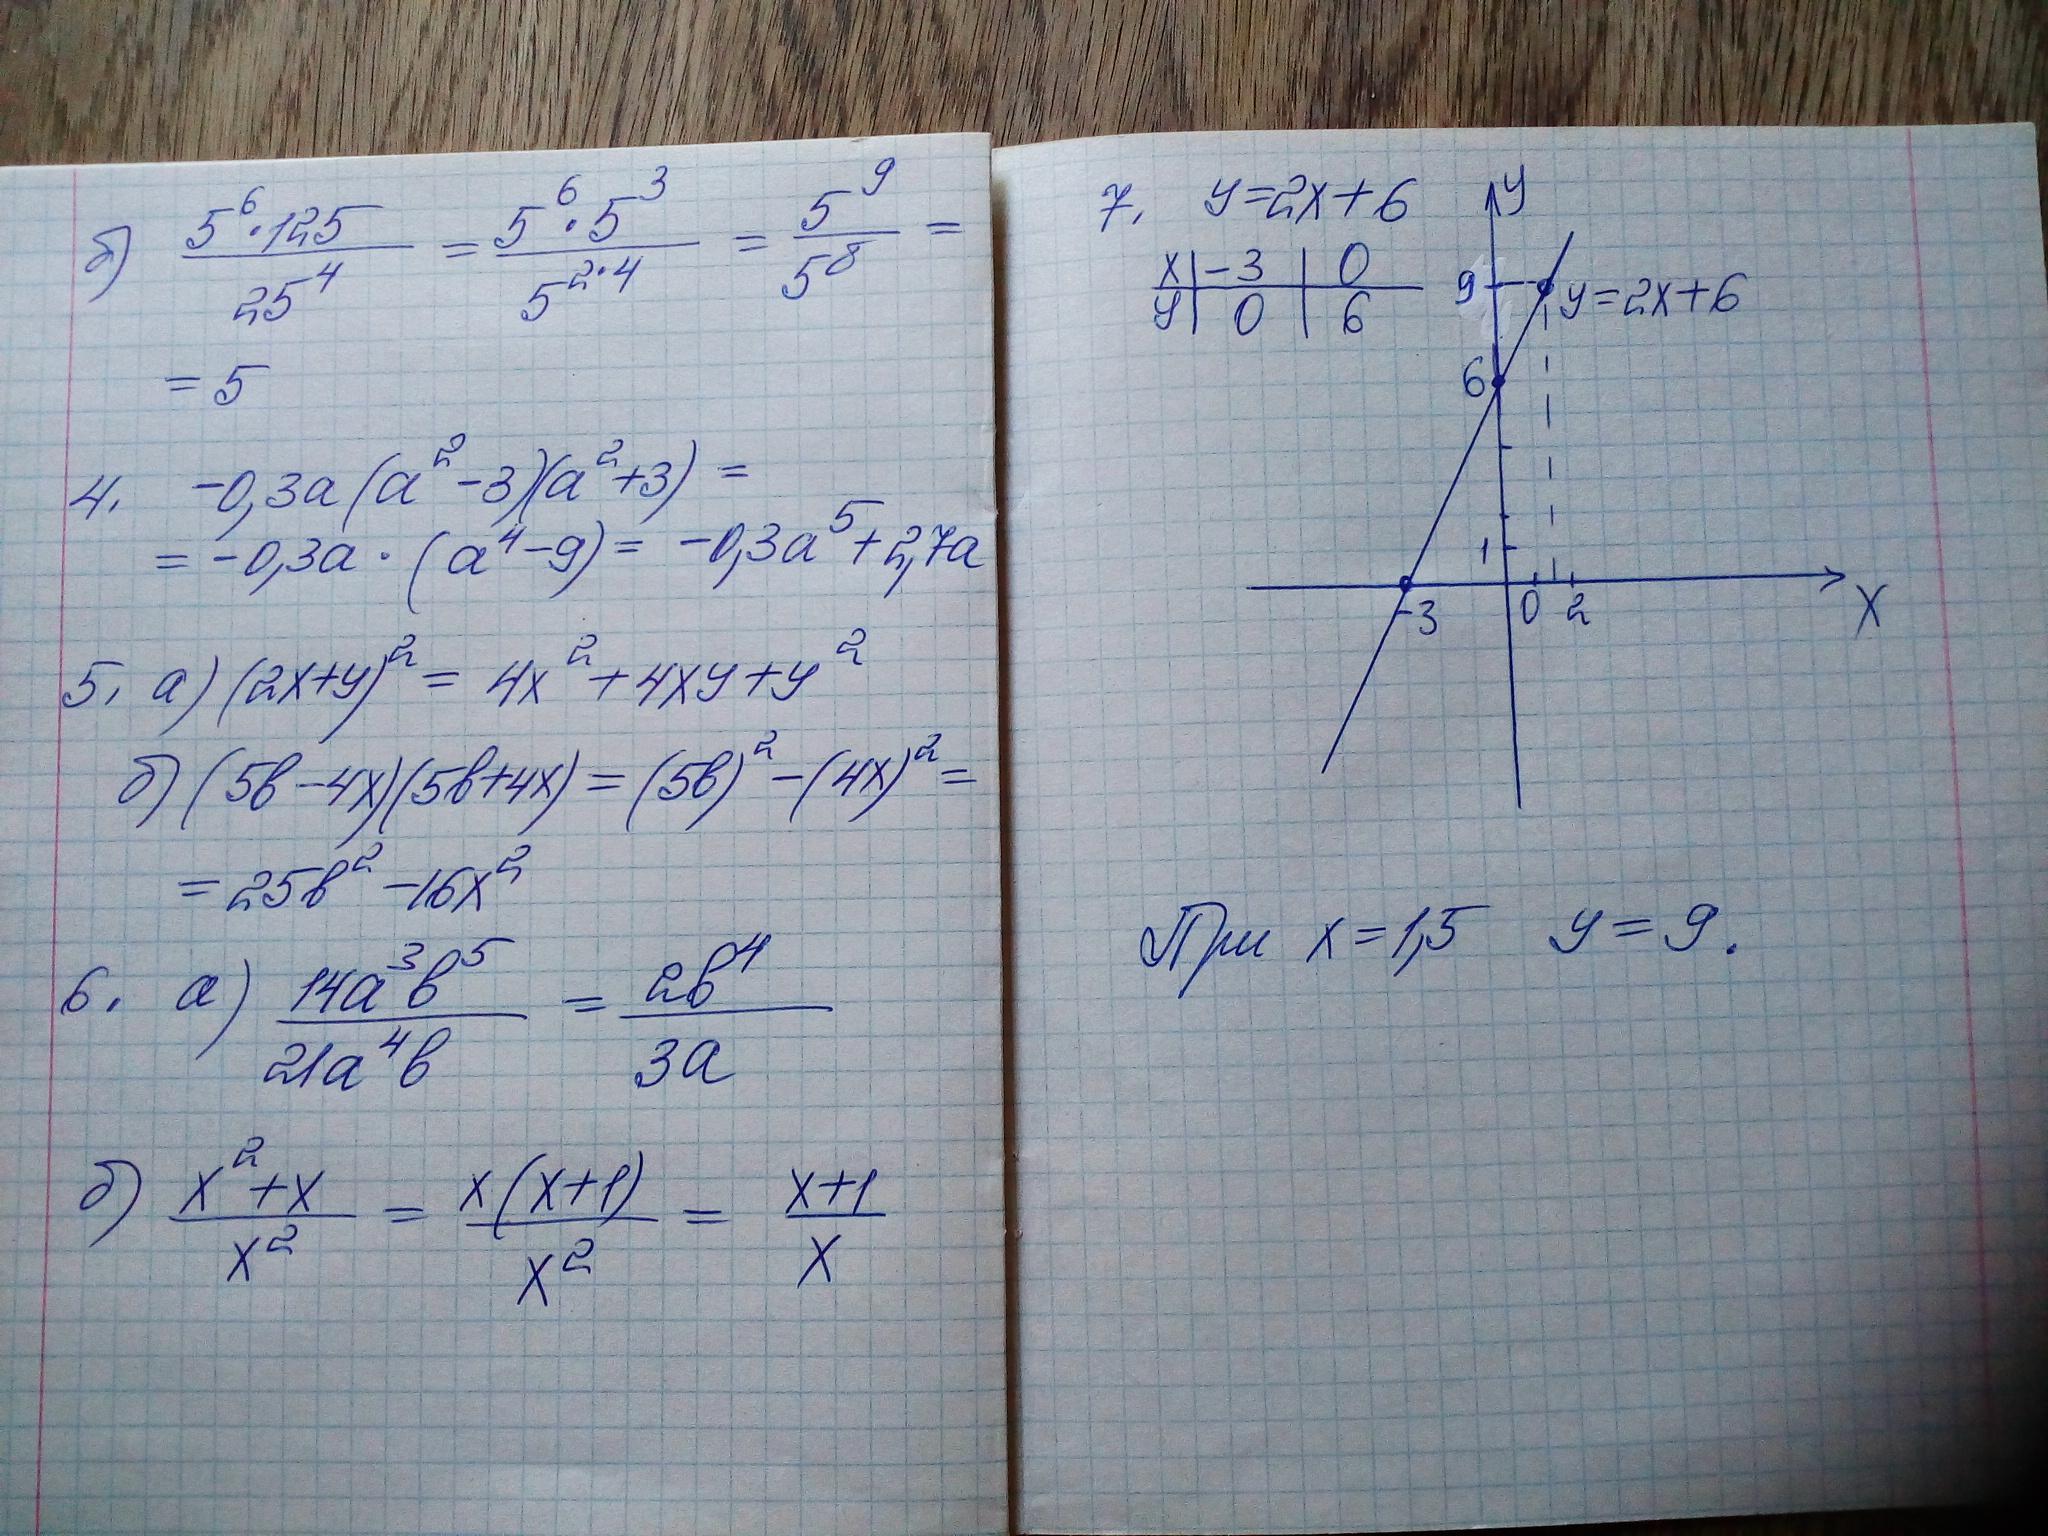 б) 5⁶·125 / 25⁴ = 5⁶·5³ / 5²·⁴ = 5⁹ / 5⁸ =
= 5
4. -0,3a(a²-3)(a²+3) =
= -0,3a·(a⁴-9) = -0,3a⁵+2,7a
5. а) (2x+y)² = 4x²+4xy+y²
б) (5b-4x)(5b+4x) = (5b)²-(4x)² =
= 25b²-16x²
6. а) 14a³b⁵ / 21a⁴b = 2b⁴ / 3a
б) x²+x / x² = x(x+1) / x² = x+1 / x
7. y=2x+6
x | -3 | 0
y | 0 | 6
y
9
y=2x+6
6
1
-3 0 2 x
При x=1,5 y=9.